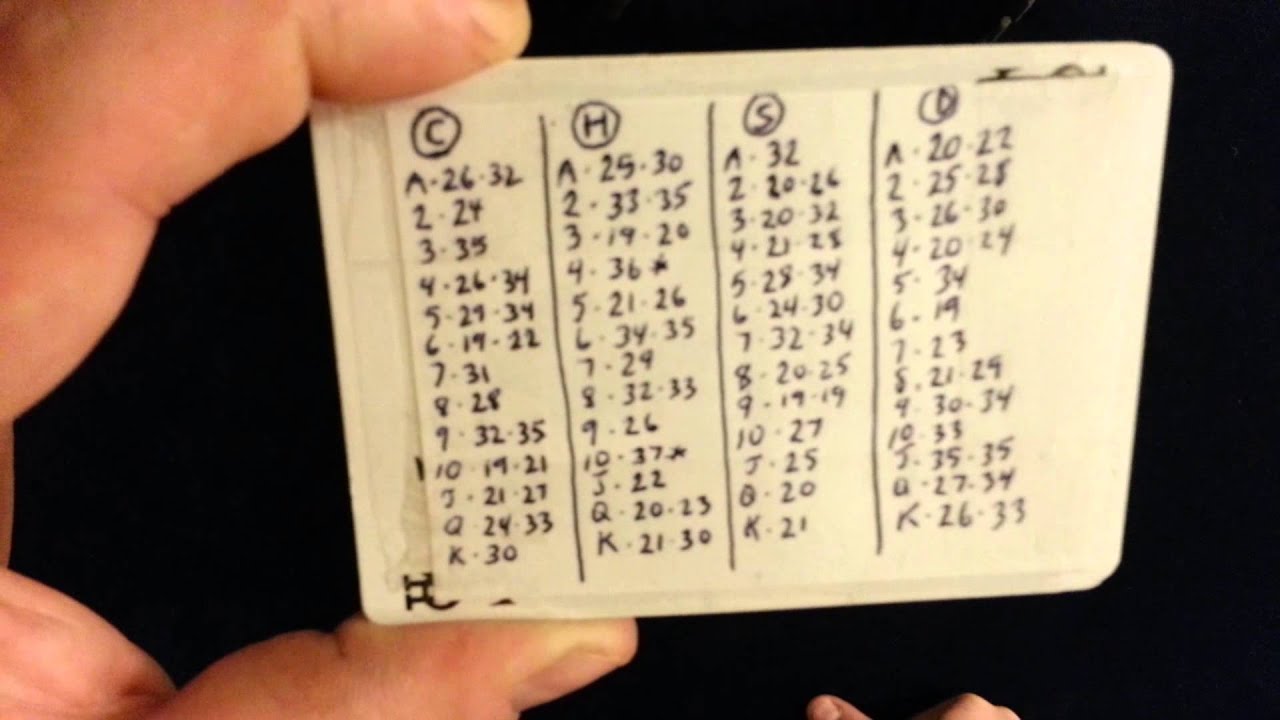 C
A·26·32
2·24
3·35
4·26·34
5·29·34
6·19·22
7·31
8·28
9·32·35
10·19·21
J·21·27
Q·24·33
K·30
H
A·25·30
2·33·35
3·19·20
4·36*
5·21·26
6·34·35
7·29
8·32·33
9·26
10·37*
J·22
Q·20·23
K·21·30
S
A·32
2·20·26
3·20·32
4·21·28
5·28·34
6·24·30
7·32·34
8·20·25
9·19·19
10·27
J·25
Q·20
K·21
D
A·20·22
2·25·28
3·26·30
4·20·24
5·34
6·19
7·23
8·21·29
9·30·34
10·33
J·35·35
Q·27·34
K·26·33